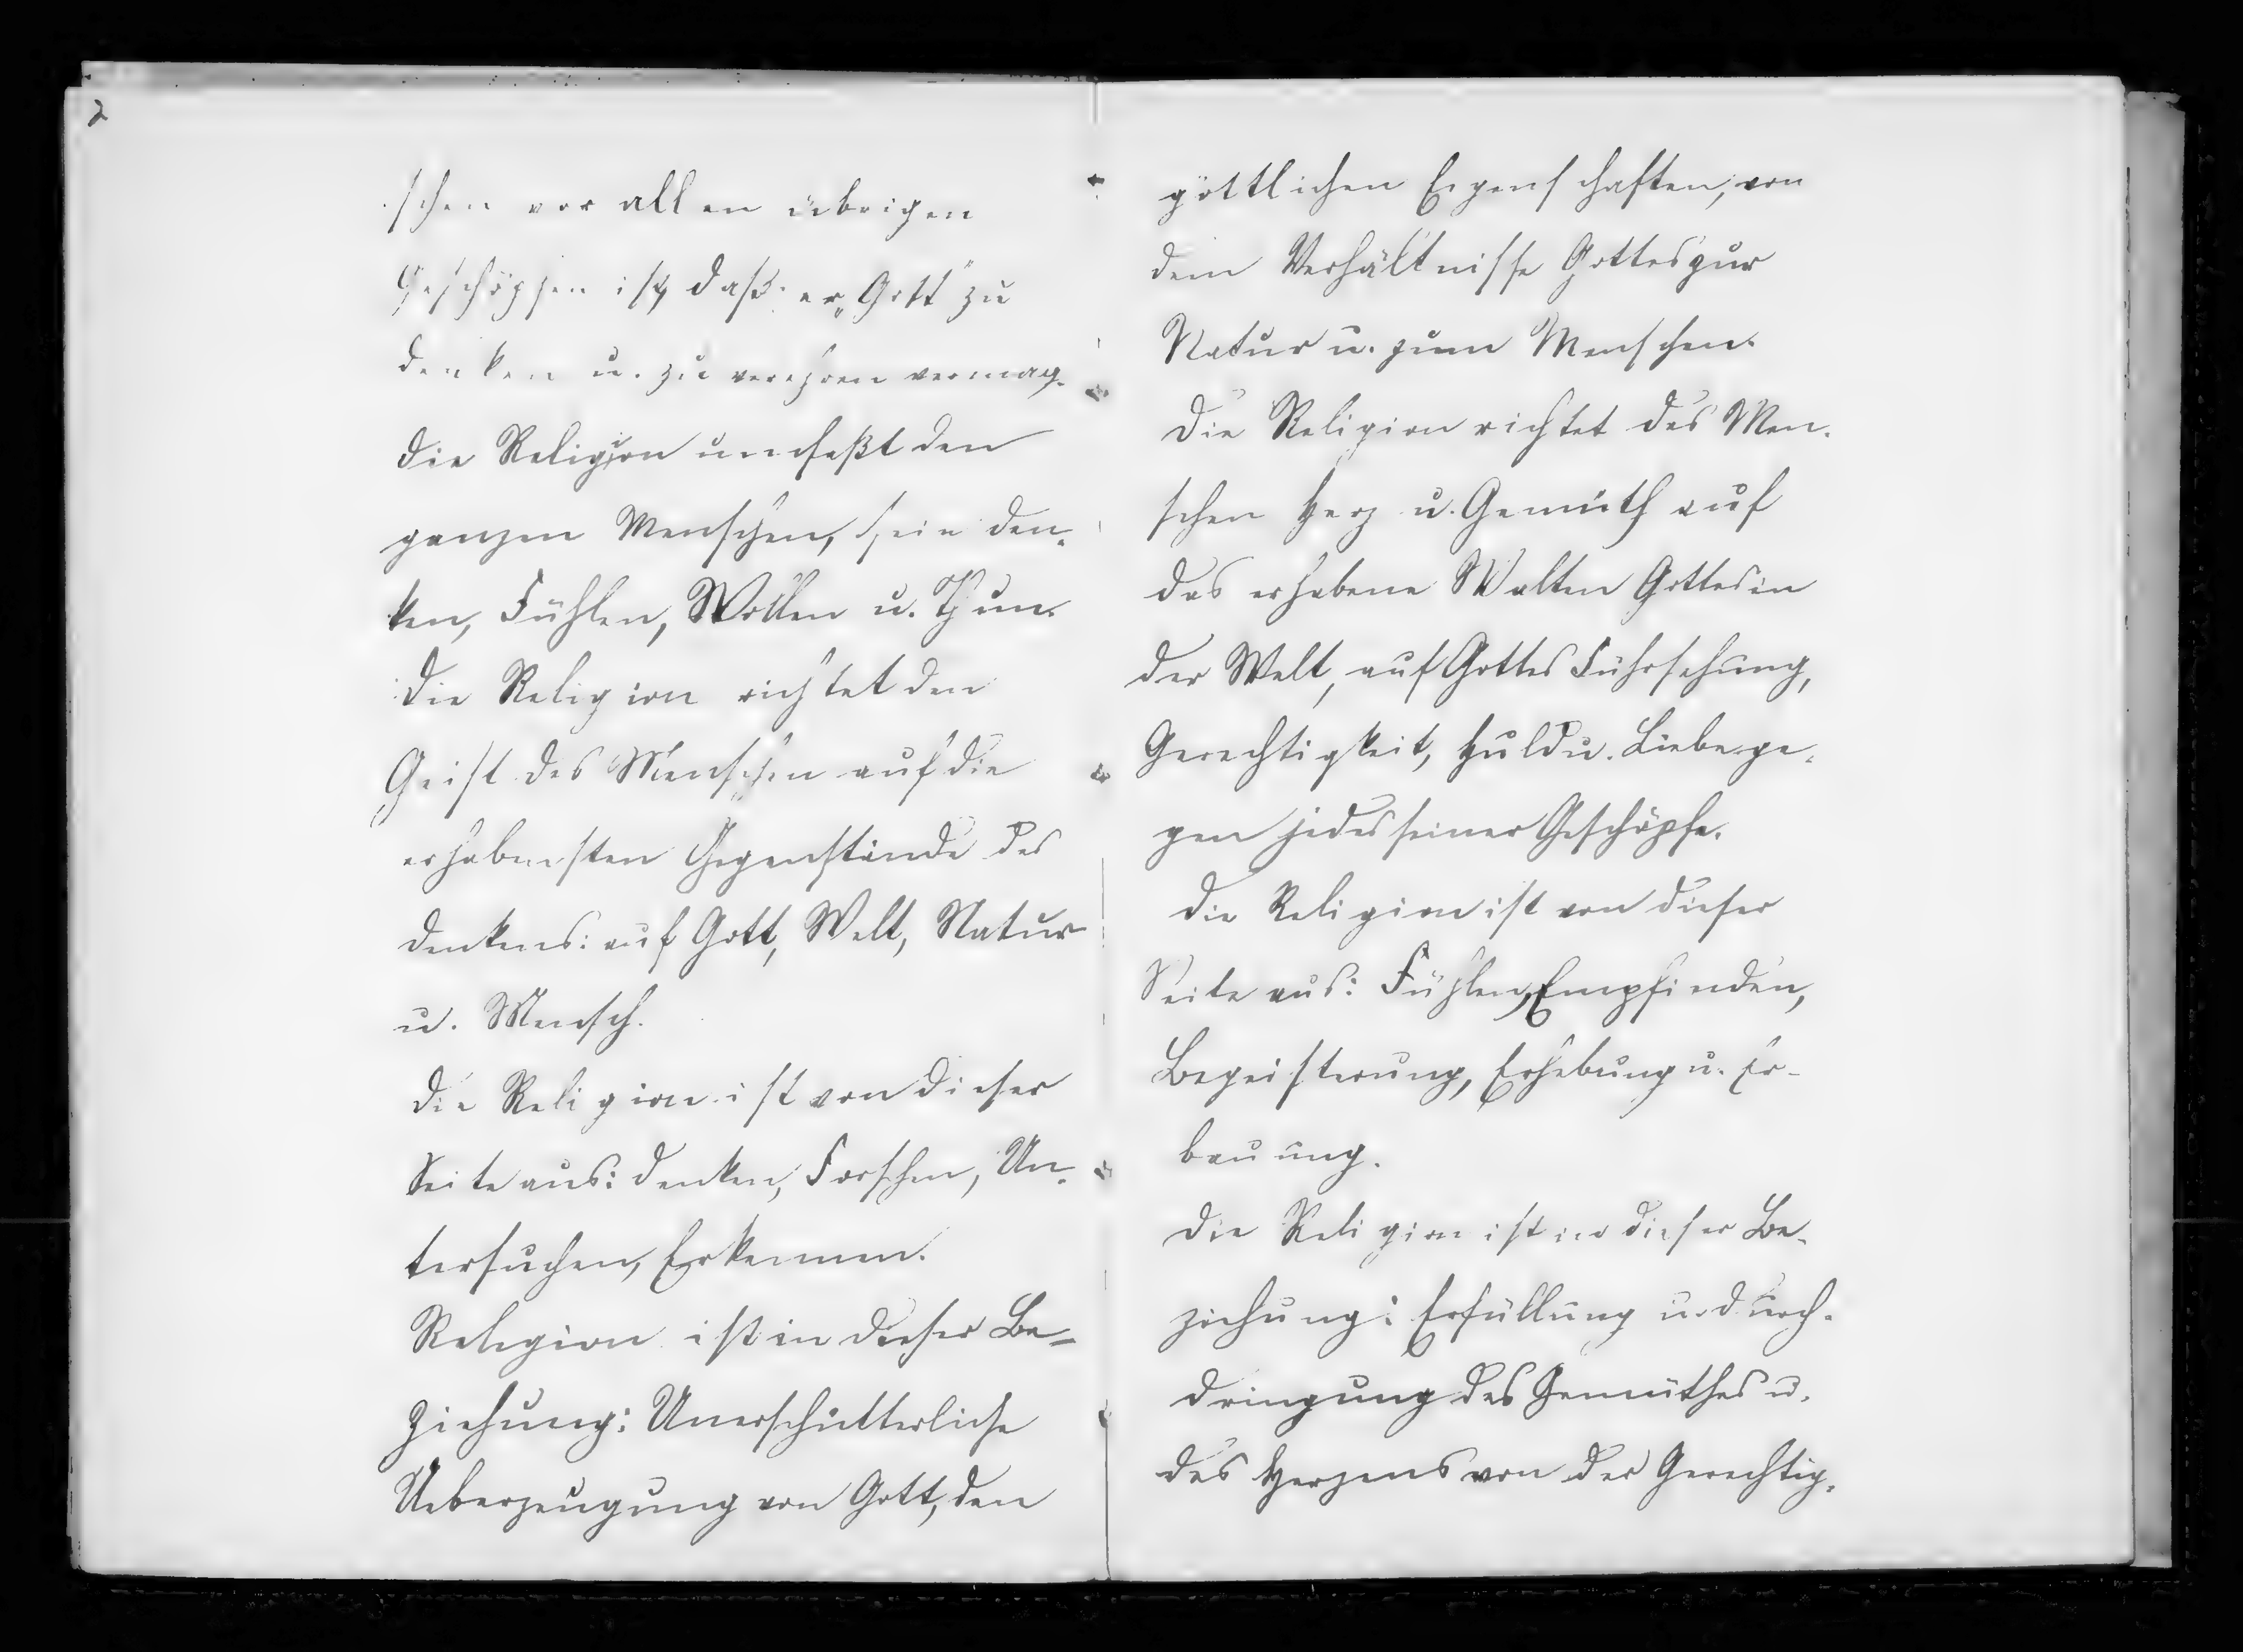 2
schen vor allen übrigen
Geschöpfen ist, daß er „Gott" zu
denken u. zu verehren vermag.
Die Religion umfaßt den
ganzen Menschen, sein Den-
ken, Fühlen, Wollen u. Thun.
Die Religion richtet den
Geist des Menschen auf die
erhabensten Gegenstände des
Denkens: auf Gott, Welt, Natur
u. Mensch.
Die Religion ist von dieser
Seite aus: Denken, Forschen, Un-
tersuchen, Erkennen.
Religion ist in dieser Be-
ziehung: Unerschütterliche
Ueberzeugung von Gott, den
göttlichen Eigenschaften, von
dem Verhältnisse Gottes zur
Natur u. zum Menschen.
Die Religion richtet des Men-
schen Herz u. Gemüth auf
das erhabene Walten Gottes in
der Welt, auf Gottes Führsehung,
Gerechtigkeit, Huld u. Liebe ge-
gen jedes seiner Geschöpfe.
Die Religion ist von dieser
Seite aus: Fühlen, Empfinden,
Begeisterung, Erhebung u. Er-
bauung.
Die Religion ist in dieser Be-
ziehung: Erfüllung u. Durch-
dringung des Gemüthes u.
des Herzens von der Gerechtig-